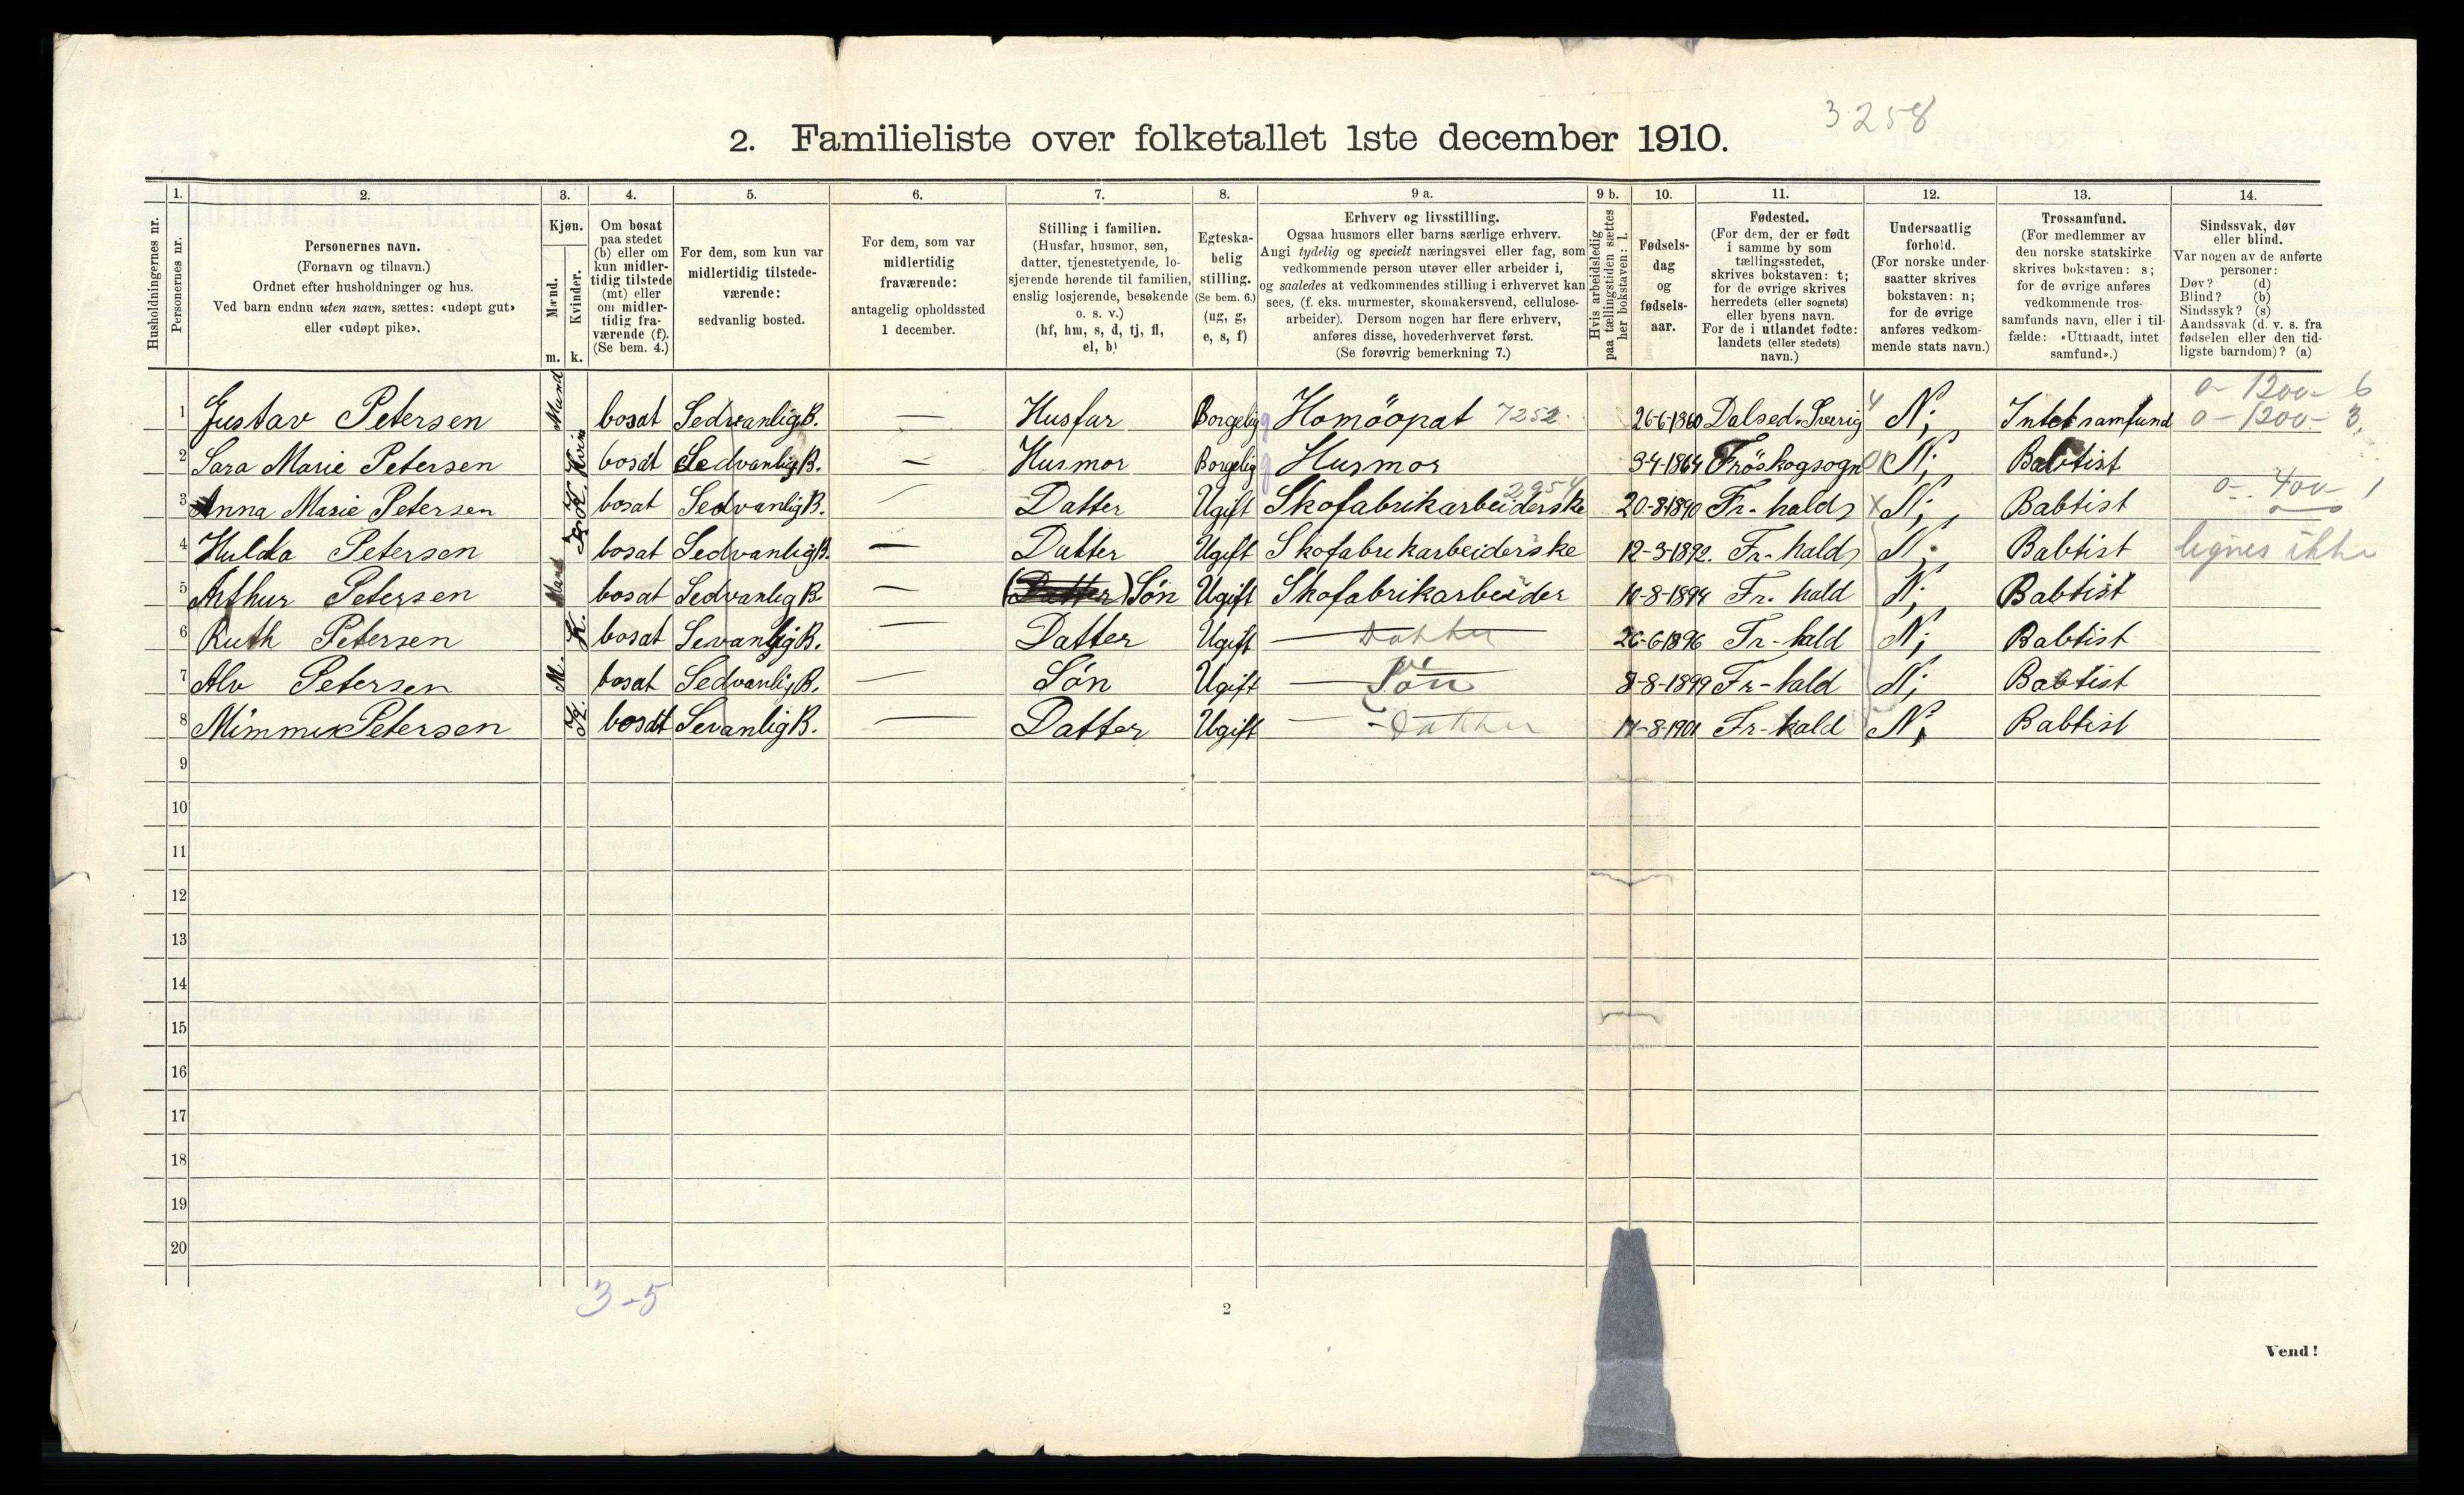 3258
2. Familieliste over folketallet 1ste december 1910.
1. 2. 3. 4. 5. 6. 7. 8. 9 a. 9 b. 10. 11. 12. 13. 14.
Husholdningernes nr.
Personernes nr.
Personernes navn.
(Fornavn og tilnavn.)
Ordnet efter husholdninger og hus.
Ved barn endnu uten navn, sættes: «udøpt gut»
eller «udøpt pike».
Kjøn.
Mænd.
Kvinder.
m. k.
Om bosat
paa stedet
(b) eller om
kun midler-
tidig tilstede
(mt) eller
om midler-
tidig fra-
værende (f).
(Se bem. 4.)
For dem, som kun var
midlertidig tilstede-
værende:
sedvanlig bosted.
For dem, som var
midlertidig
fraværende:
antagelig opholdssted
1 december.
Stilling i familien.
(Husfar, husmor, søn,
datter, tjenestetyende, lo-
sjerende hørende til familien,
enslig losjerende, besøkende
o. s. v.)
(hf, hm, s, d, tj, fl,
el, b)
Egteska-
belig
stilling.
(Se bem. 6.)
(ug, g,
e, s, f)
Erhverv og livsstilling.
Ogsaa husmors eller barns særlige erhverv.
Angi tydelig og specielt næringsvei eller fag, som
vedkommende person utøver eller arbeider i,
og saaledes at vedkommendes stilling i erhvervet kan
sees, (f. eks. murmester, skomakersvend, cellulose-
arbeider). Dersom nogen har flere erhverv,
anføres disse, hovederhvervet først.
(Se forøvrig bemerkning 7.)
Hvis arbeidsledig
paa tællingstiden sættes
her bokstaven: l.
Fødsels-
dag
og
fødsels-
aar.
Fødested.
(For dem, der er født
i samme by som
tællingsstedet,
skrives bokstaven: t;
for de øvrige skrives
herredets (eller sognets)
eller byens navn.
For de i utlandet fødte:
landets (eller stedets)
navn.)
Undersaatlig
forhold.
(For norske under-
saatter skrives
bokstaven: n;
for de øvrige
anføres vedkom-
mende stats navn.)
Trossamfund.
(For medlemmer av
den norske statskirke
skrives bokstaven: s;
for de øvrige anføres
vedkommende tros-
samfunds navn, eller i til-
fælde: «Uttraadt, intet
samfund».)
Sindssvak, døv
eller blind.
Var nogen av de anførte
personer:
Døv? (d)
Blind? (b)
Sindssyk? (s)
Aandssvak (d. v. s. fra
fødselen eller den tid-
ligste barndom)? (a)
o- 1200- 6
1 Gustav Petersen Mand bosat Sedvanlig B. — Husfar Borgelig g Homöopat 7252 26-6-1860 Dalsed. Sverig 4 N; Intet samfund o- 1200- 3
2 Sara Marie Petersen Kvin bosat Sedvanlig B. — Husmor Borgelig g Husmor 3-4-1864 Fröskogsogn N; Babtist
3 Anna Marie Petersen K. bosat Sedvanlig B. — Datter Ugift Skofabrikarbeiderske 2954 20-8-1890 Fr-hald x N; Babtist o- 400- 1
4 Hulda Petersen K bosat Sedvanlig B. — Datter Ugift Skofabrikarbeiderske 12-3-1892. Fr-hald N; Babtist lignes ikke
5 Arthur Petersen Mand bosat Sedvanlig B. — (Datter) Sön Ugift Skofabrikarbeider 10-8-1894 Fr. hald N; Babtist
6 Ruth Petersen K. bosat Sevanlig B. — Datter Ugift Datter 26-6-1896 Fr-hald N; Babtist
7 Alv Petersen M. bosat Sedvanlig B. — Sön Ugift Sön 8-8-1899 Fr-hald N; Babtist
8 Mimmi Petersen K. bosat Sevanlig B. — Datter Ugift Datter 14-8-1901 Fr-hald N; Babtist
9
10
11
12
13
14
15
16
17
18
19
20
3-5
2
Vend!